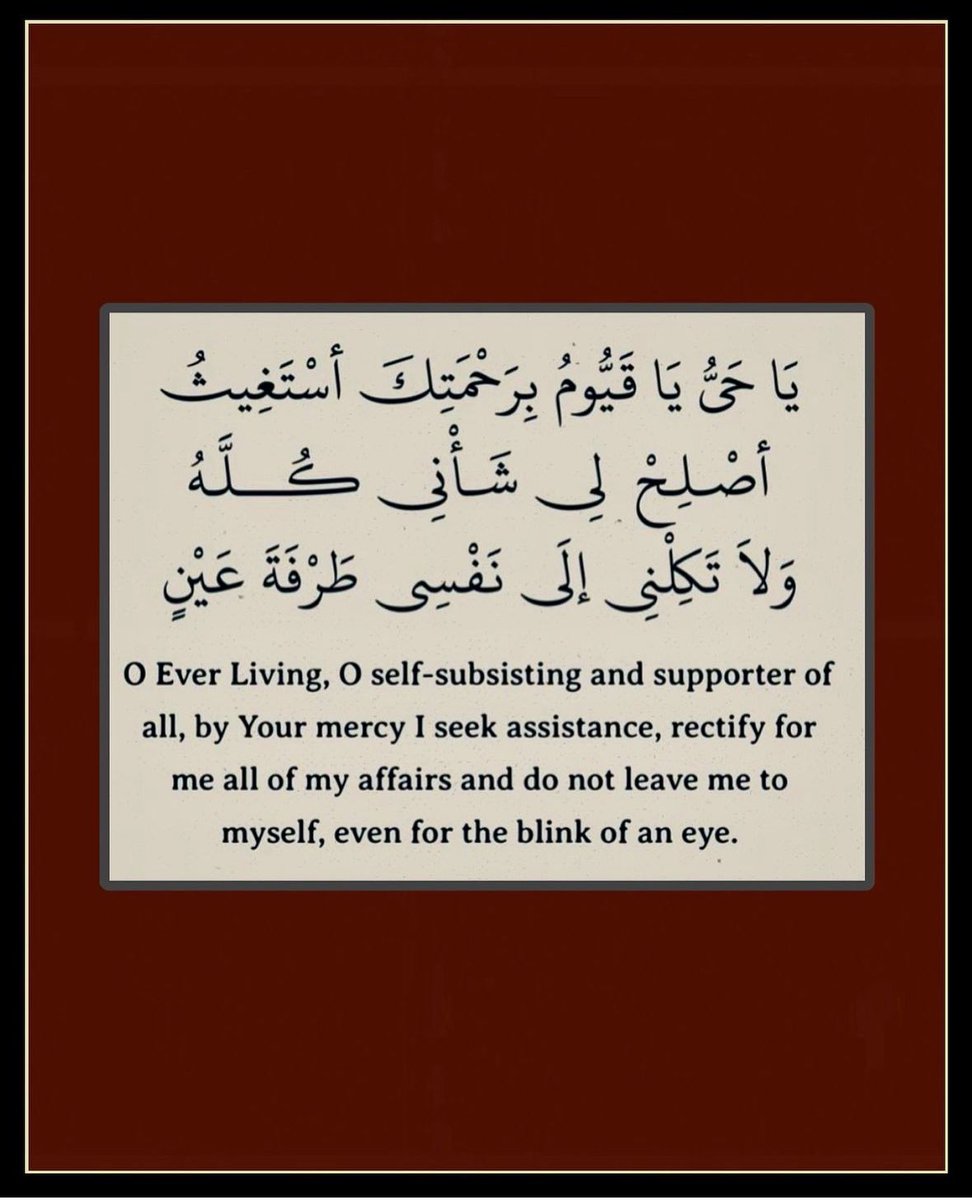 يَا حَىُّ يَا قَيُّومُ بِرَحْمَتِكَ أَسْتَغِيثُ
أَصْلِحْ لِى شَأْنِى كُلَّهُ
وَلاَ تَكِلْنِى إِلَى نَفْسِى طَرْفَةَ عَيْنٍ
O Ever Living, O self-subsisting and supporter of
all, by Your mercy I seek assistance, rectify for
me all of my affairs and do not leave me to
myself, even for the blink of an eye.